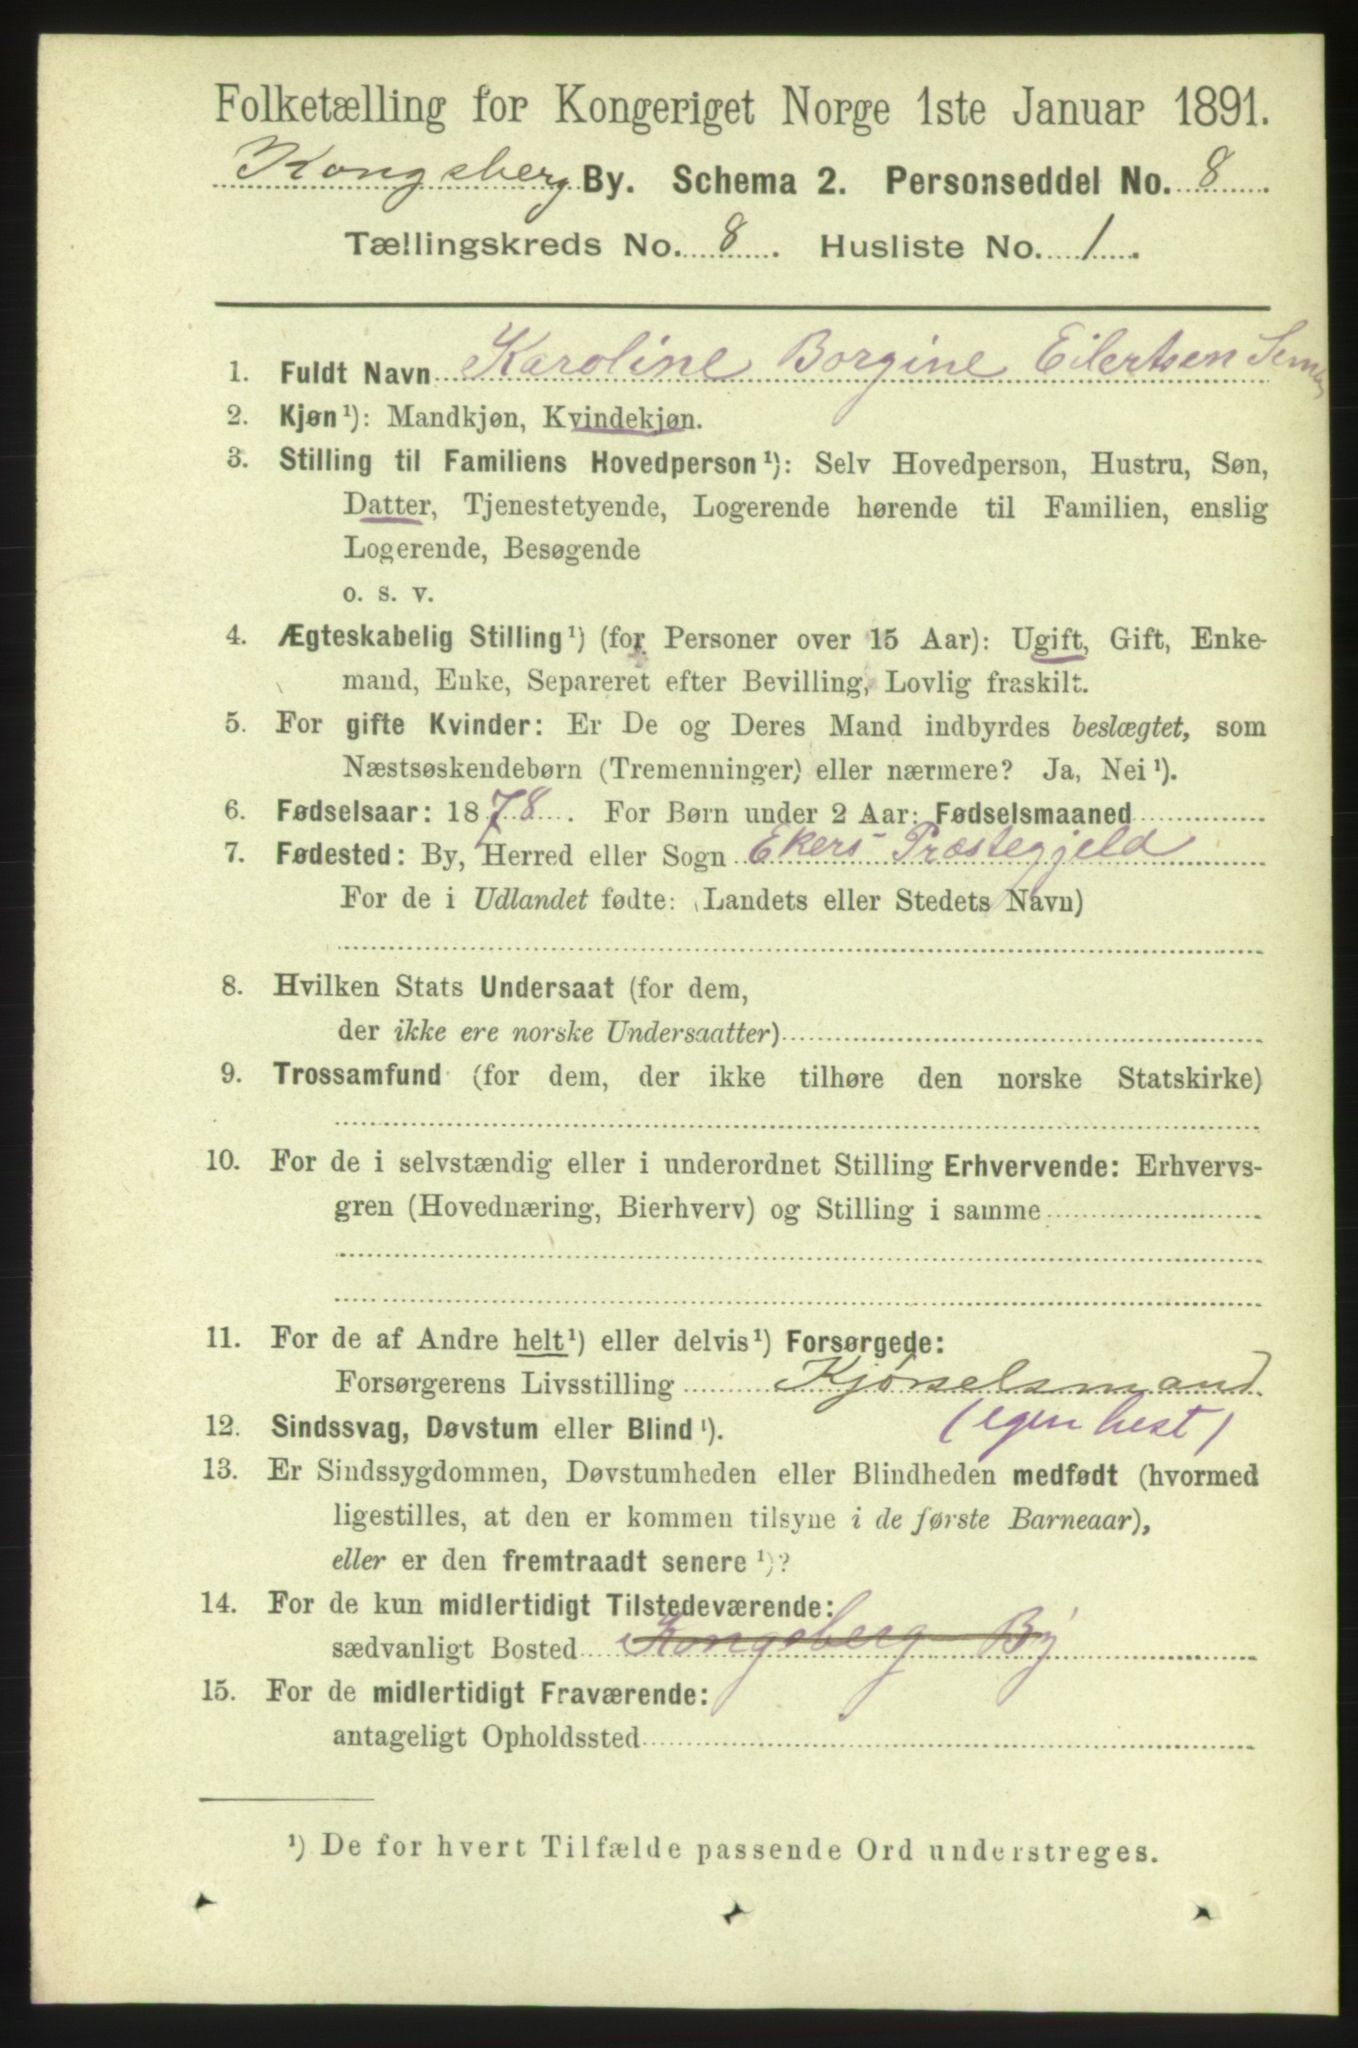 Folketælling for Kongeriget Norge 1ste Januar 1891.
Kongsberg By. Schema 2. Personseddel No. 8
Tællingskreds No. 8. Husliste No. 1.
1. Fuldt Navn Karoline Borgine Eilertsen
2. Kjøn ¹): Mandkjøn, Kvindekjøn.
3. Stilling til Familiens Hovedperson ¹): Selv Hovedperson, Hustru, Søn,
Datter, Tjenestetyende, Logerende hørende til Familien, enslig
Logerende, Besøgende
o. s. v.
4. Ægteskabelig Stilling ¹) (for Personer over 15 Aar): Ugift, Gift, Enke-
mand, Enke, Separeret efter Bevilling, Lovlig fraskilt.
5. For gifte Kvinder: Er De og Deres Mand indbyrdes beslægtet, som
Næstsøskendebørn (Tremenninger) eller nærmere? Ja, Nei ¹).
6. Fødselsaar: 1878. For Børn under 2 Aar: Fødselsmaaned
7. Fødested: By, Herred eller Sogn Ekers Præstegjeld
For de i Udlandet fødte: (Landets eller Stedets Navn)
8. Hvilken Stats Undersaat (for dem,
der ikke ere norske Undersaatter)
9. Trossamfund (for dem, der ikke tilhøre den norske Statskirke)
10. For de i selvstændig eller i underordnet Stilling Erhvervende: Erhvervs-
gren (Hovednæring, Bierhverv) og Stilling i samme
11. For de af Andre helt ¹) eller delvis ¹) Forsørgede:
Forsørgerens Livsstilling Kjørselsmand
12. Sindssvag, Døvstum eller Blind ¹). (egen hest)
13. Er Sindssygdommen, Døvstumheden eller Blindheden medfødt (hvormed
ligestilles, at den er kommen tilsyne i de første Barneaar),
eller er den fremtraadt senere ¹)?
14. For de kun midlertidigt Tilstedeværende:
sædvanligt Bosted Kongsberg By
15. For de midlertidigt Fraværende:
antageligt Opholdssted
¹) De for hvert Tilfælde passende Ord understreges.